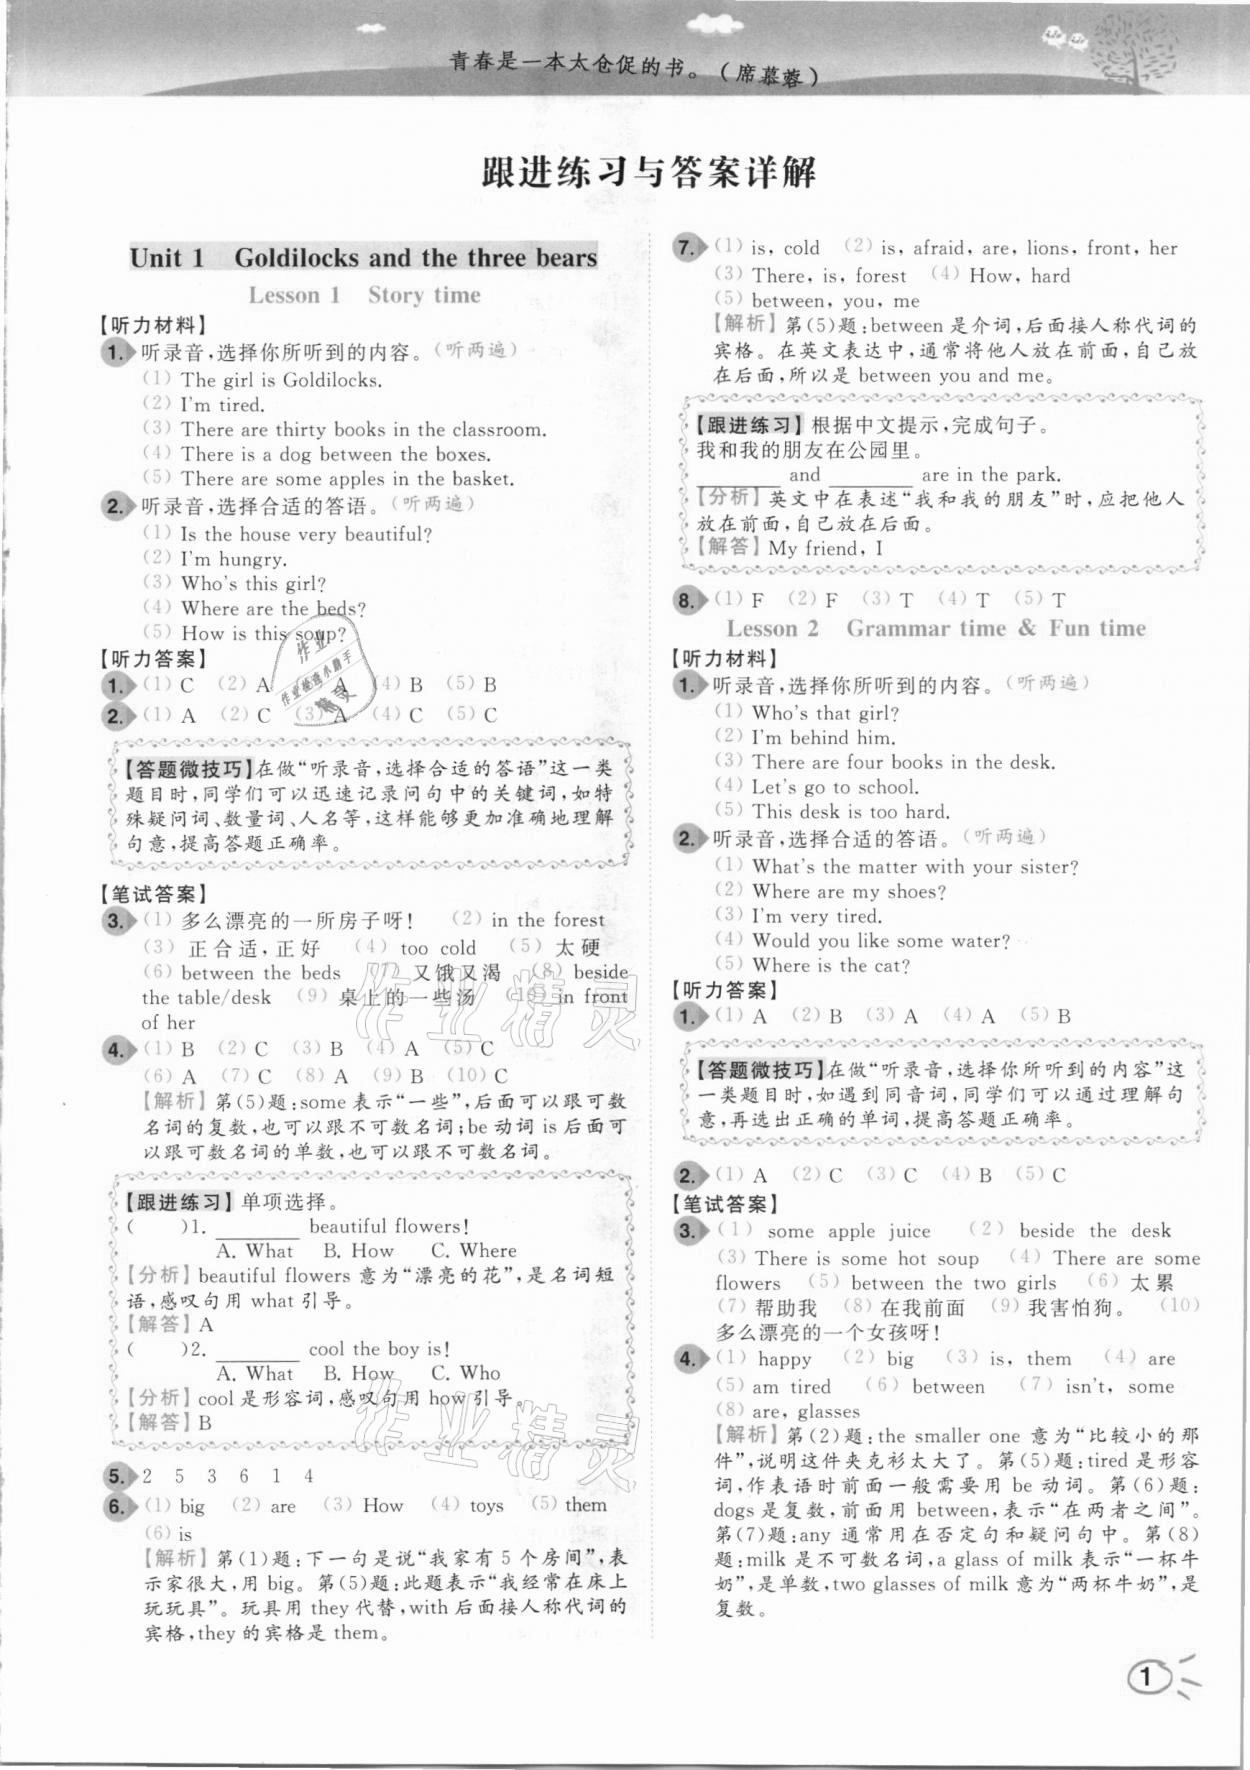 青春是一本太仓促的书。（席慕蓉）
跟进练习与答案详解
Unit 1 Goldilocks and the three bears
Lesson 1 Story time
【听力材料】
1. 听录音,选择你所听到的内容。(听两遍)
(1) The girl is Goldilocks.
(2) I'm tired.
(3) There are thirty books in the classroom.
(4) There is a dog between the boxes.
(5) There are some apples in the basket.
2. 听录音,选择合适的答语。(听两遍)
(1) Is the house very beautiful?
(2) I'm hungry.
(3) Who's this girl?
(4) Where are the beds?
(5) How is this soup?
【听力答案】
1. (1) C (2) A A (4) B (5) B
2. (1) A (2) C (3) A (4) C (5) C
【答题微技巧】在做“听录音,选择合适的答语”这一类
题目时,同学们可以迅速记录问句中的关键词,如特
殊疑问词、数量词、人名等,这样能够更加准确地理解
句意,提高答题正确率。
【笔试答案】
3. (1) 多么漂亮的一所房子呀! (2) in the forest
(3) 正合适,正好 (4) too cold (5) 太硬
(6) between the beds (7) 又饿又渴 (8) beside
the table/desk (9) 桌上的一些汤 (10) in front
of her
4. (1) B (2) C (3) B (4) A (5) C
(6) A (7) C (8) A (9) B (10) C
【解析】第(5)题:some表示“一些”,后面可以跟可数
名词的复数,也可以跟不可数名词;be动词is后面可
以跟可数名词的单数,也可以跟不可数名词。
【跟进练习】单项选择。
( )1. ________ beautiful flowers!
A. What B. How C. Where
【分析】beautiful flowers意为“漂亮的花”,是名词短
语,感叹句用what引导。
【解答】A
( )2. ________ cool the boy is!
A. What B. How C. Who
【分析】cool是形容词,感叹句用how引导。
【解答】B
5. 2 5 3 6 1 4
6. (1) big (2) are (3) How (4) toys (5) them
(6) is
【解析】第(1)题:下一句是说“我家有5个房间”,表
示家很大,用big。第(5)题:此题表示“我经常在床上
玩玩具”。玩具用they代替,with后面接人称代词的
宾格,they的宾格是them。
7. (1) is, cold (2) is, afraid, are, lions, front, her
(3) There, is, forest (4) How, hard
(5) between, you, me
【解析】第(5)题:between是介词,后面接人称代词的
宾格。在英文表达中,通常将他人放在前面,自己放
在后面,所以是between you and me。
【跟进练习】根据中文提示,完成句子。
我和我的朋友在公园里。
________ and ________ are in the park.
【分析】英文中在表述“我和我的朋友”时,应把他人
放在前面,自己放在后面。
【解答】My friend, I
8. (1) F (2) F (3) T (4) T (5) T
Lesson 2 Grammar time & Fun time
【听力材料】
1. 听录音,选择你所听到的内容。(听两遍)
(1) Who's that girl?
(2) I'm behind him.
(3) There are four books in the desk.
(4) Let's go to school.
(5) This desk is too hard.
2. 听录音,选择合适的答语。(听两遍)
(1) What's the matter with your sister?
(2) Where are my shoes?
(3) I'm very tired.
(4) Would you like some water?
(5) Where is the cat?
【听力答案】
1. (1) A (2) B (3) A (4) A (5) B
【答题微技巧】在做“听录音,选择你所听到的内容”这
一类题目时,如遇到同音词,同学们可以通过理解句
意,再选出正确的单词,提高答题正确率。
2. (1) A (2) C (3) C (4) B (5) C
【笔试答案】
3. (1) some apple juice (2) beside the desk
(3) There is some hot soup (4) There are some
flowers (5) between the two girls (6) 太累
(7) 帮助我 (8) 在我前面 (9) 我害怕狗。 (10)
多么漂亮的一个女孩呀!
4. (1) happy (2) big (3) is, them (4) are
(5) am tired (6) between (7) isn't, some
(8) are, glasses
【解析】第(2)题:the smaller one意为“比较小的那
件”,说明这件夹克衫太大了。第(5)题:tired是形容
词,作表语时前面一般需要用be动词。第(6)题:
dogs是复数,前面用between,表示“在两者之间”。
第(7)题:any通常用在否定句和疑问句中。第(8)
题:milk是不可数名词,a glass of milk表示“一杯牛
奶”,是单数,two glasses of milk意为“两杯牛奶”,是
复数。
1
作业精灵
作业精灵